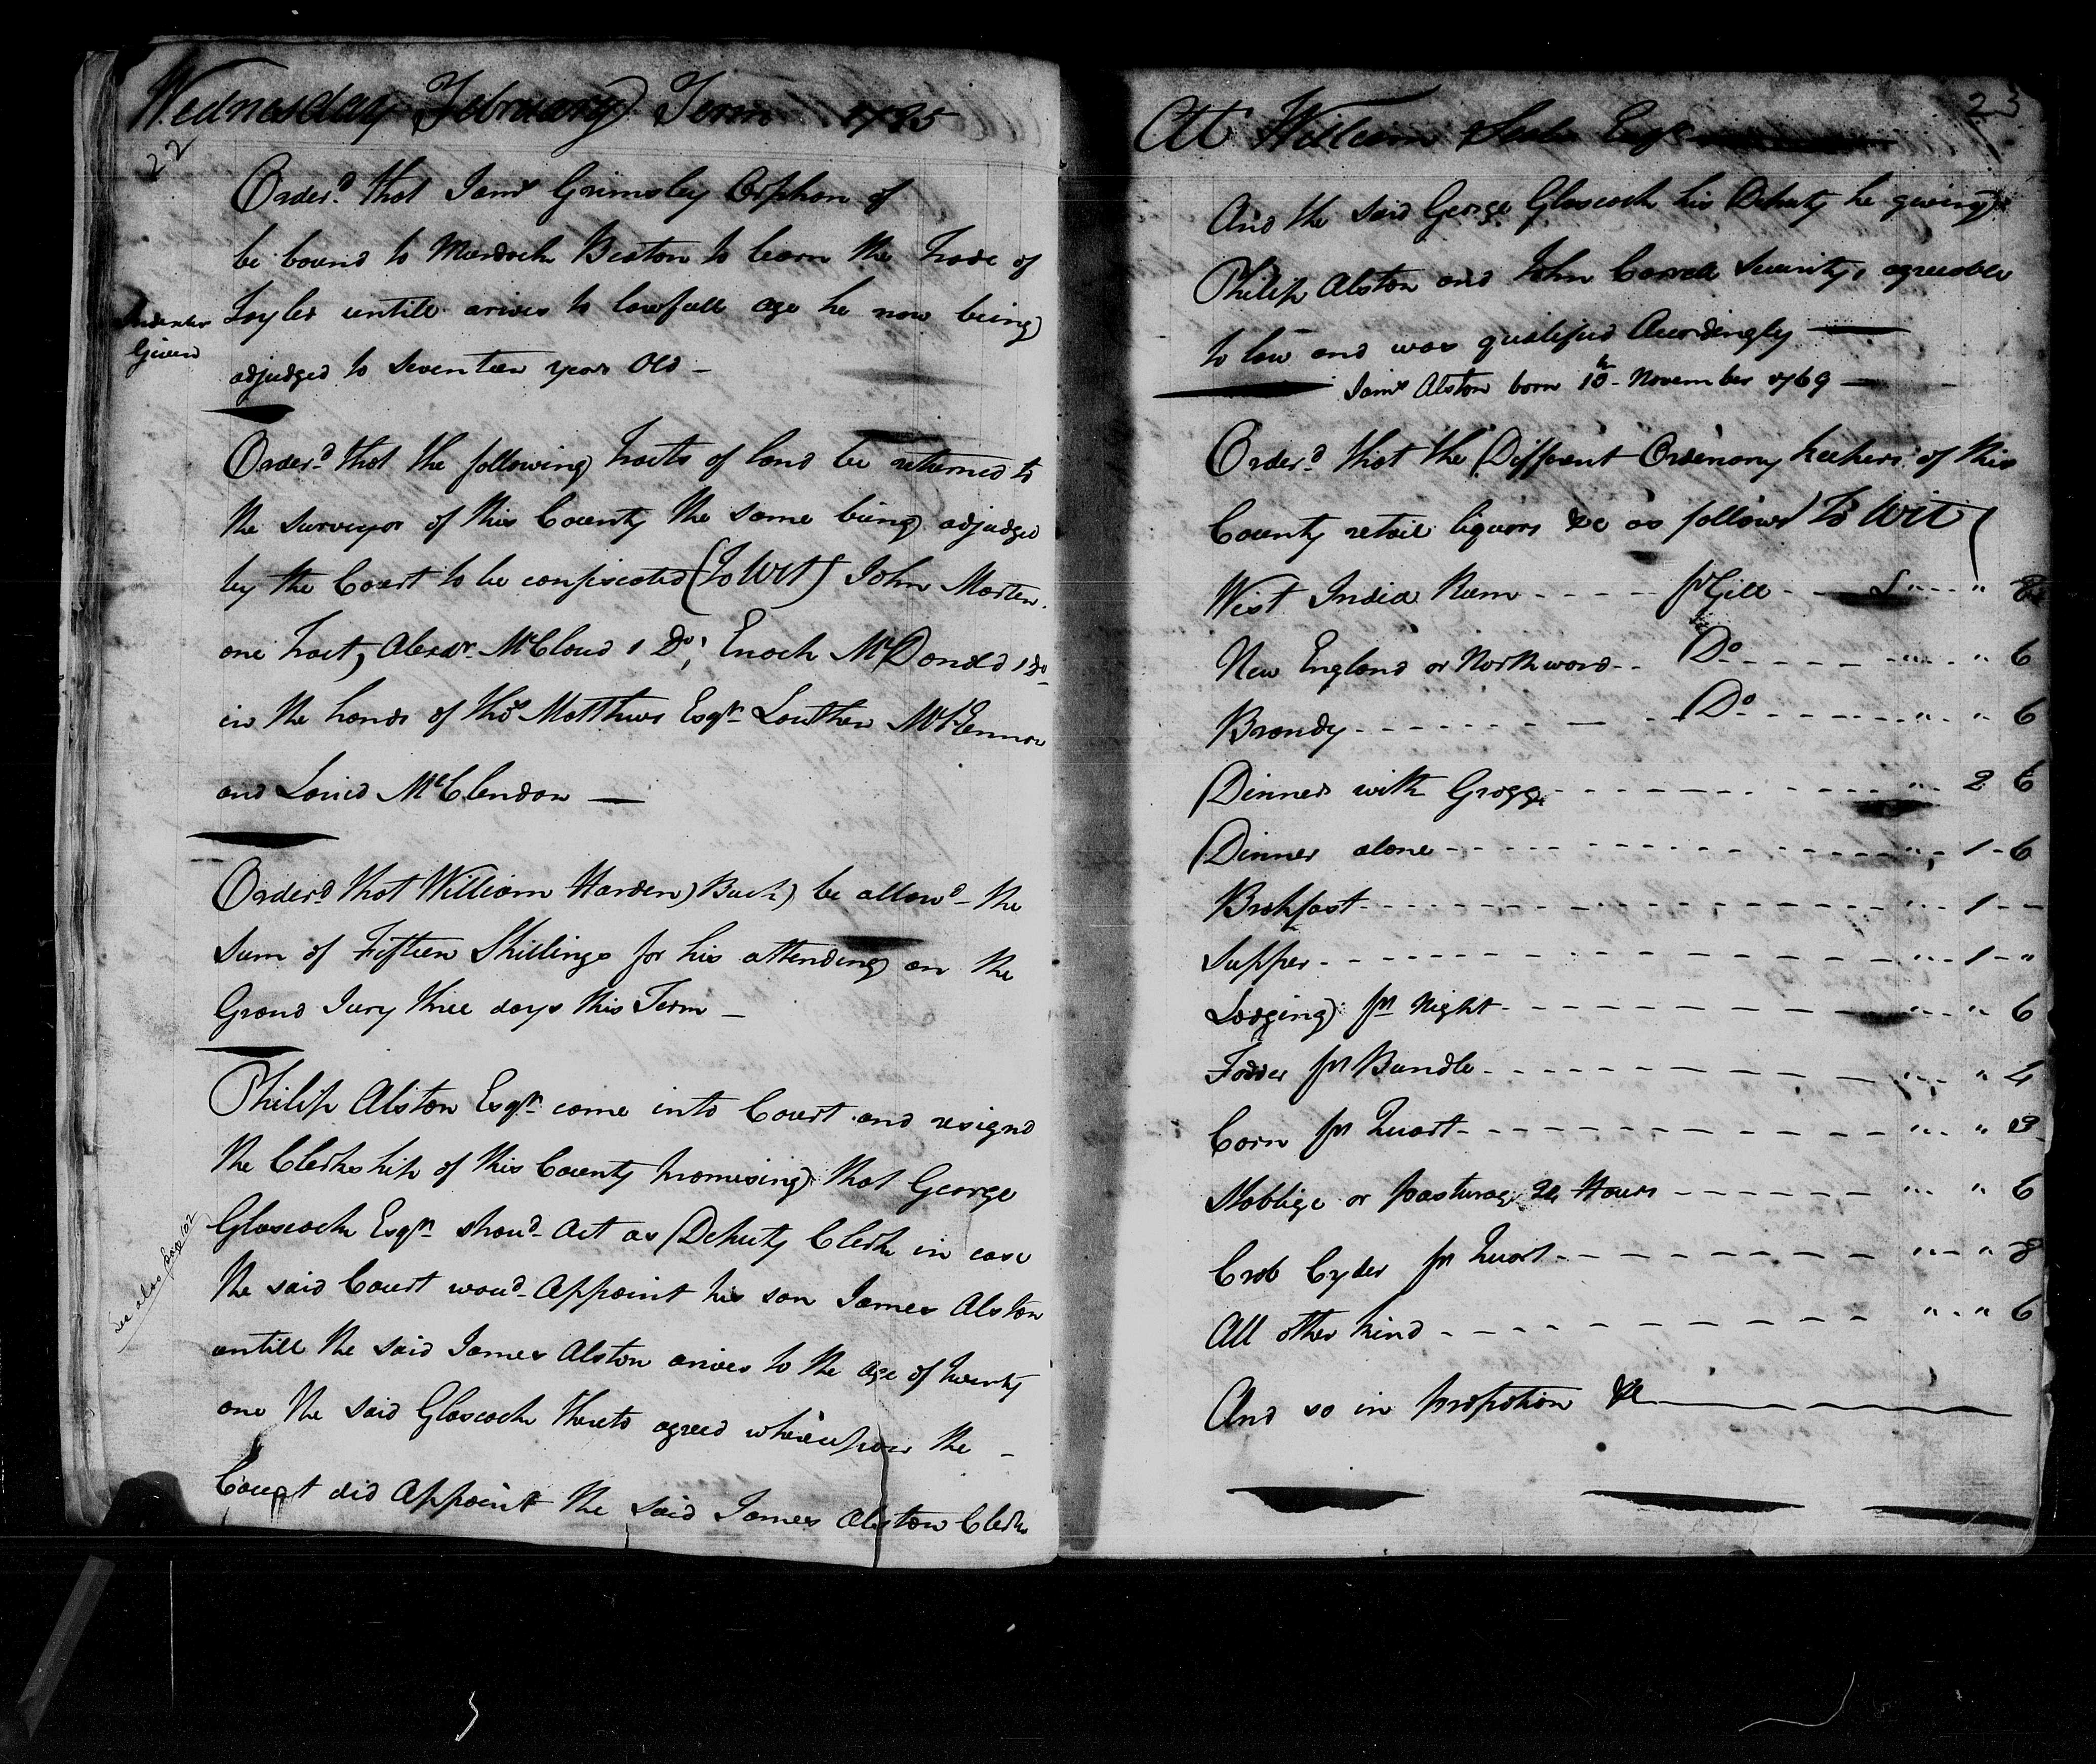 Wednesday February Term 1785
22
Order'd that Jams Grimsley Orphan of
be bound to Murdoch Beaton to learn the Trade of
Indenter
Given
Taylor untill arives to lawfull age he now being
adjudged to Seventeen years Old —
Order'd that the following tracts of land be returned to
the surveyor of this County the same being adjudged
by the Court to be confiscated (To Wit) John Marten
one tract, Alexdr McCloud 1 Do; Enoch McDonald 1 do
in the hands of Thos Matthews Esqr Lauthen
and McClendon —
Order'd that William Harden (Buck) be allow'd the
Sum of Fifteen Shillings for his attending on the
Grand Jury three days this Term —
Philip Alston Esqr came into Court and resignd
the Clerkship of this County promising that George
Glascock Esqr shoud Act as Deputy Clerk in case
See also page 62
the said Court woud Appoint his son James Alston
untill the said James Alston arives to the age of twenty
one the said Glascock thereto agreed whereupon the —
Court did Appoint the said James Alston Clerk
23
Att William Seale Esqrs
And the said George Glascock his Deputy he giving
Philip Alston and John Carrell Security, agreeable
to law and was qualified Accordingly —
Jams Alston born 10th November 1769 —
Order'd that the Different Ordenary keepers of this
County retail liquors &c as follows To Wit
West India Rum - - - - pr Gill - - £ " - - " 8
New England or Northward - - Do - - - - - " - - " 6
Brandy - - - - - - - Do - - - - - " - - " 6
Dinner with Grogg - - - - - - - - " - 2 6
Dinner alone - - - - - - - - - - " - 1 - 6
Brekfast - - - - - - - - - - - " - 1 - -
Supper - - - - - - - - - - - " - 1 - "
Lodging pr Night - - - - - - - - " - - " 6
Fodder pr Bundle - - - - - - - - " - - " 4
Corn pr Quart - - - - - - - - - " - - " 3
Stablige or pasturag 24 Hours - - - - - - " - - " 6
Crab Cyder pr Quart - - - - - - - " - - " 8
All other kind - - - - - - - - - " - - " 6
And so in propotion &c